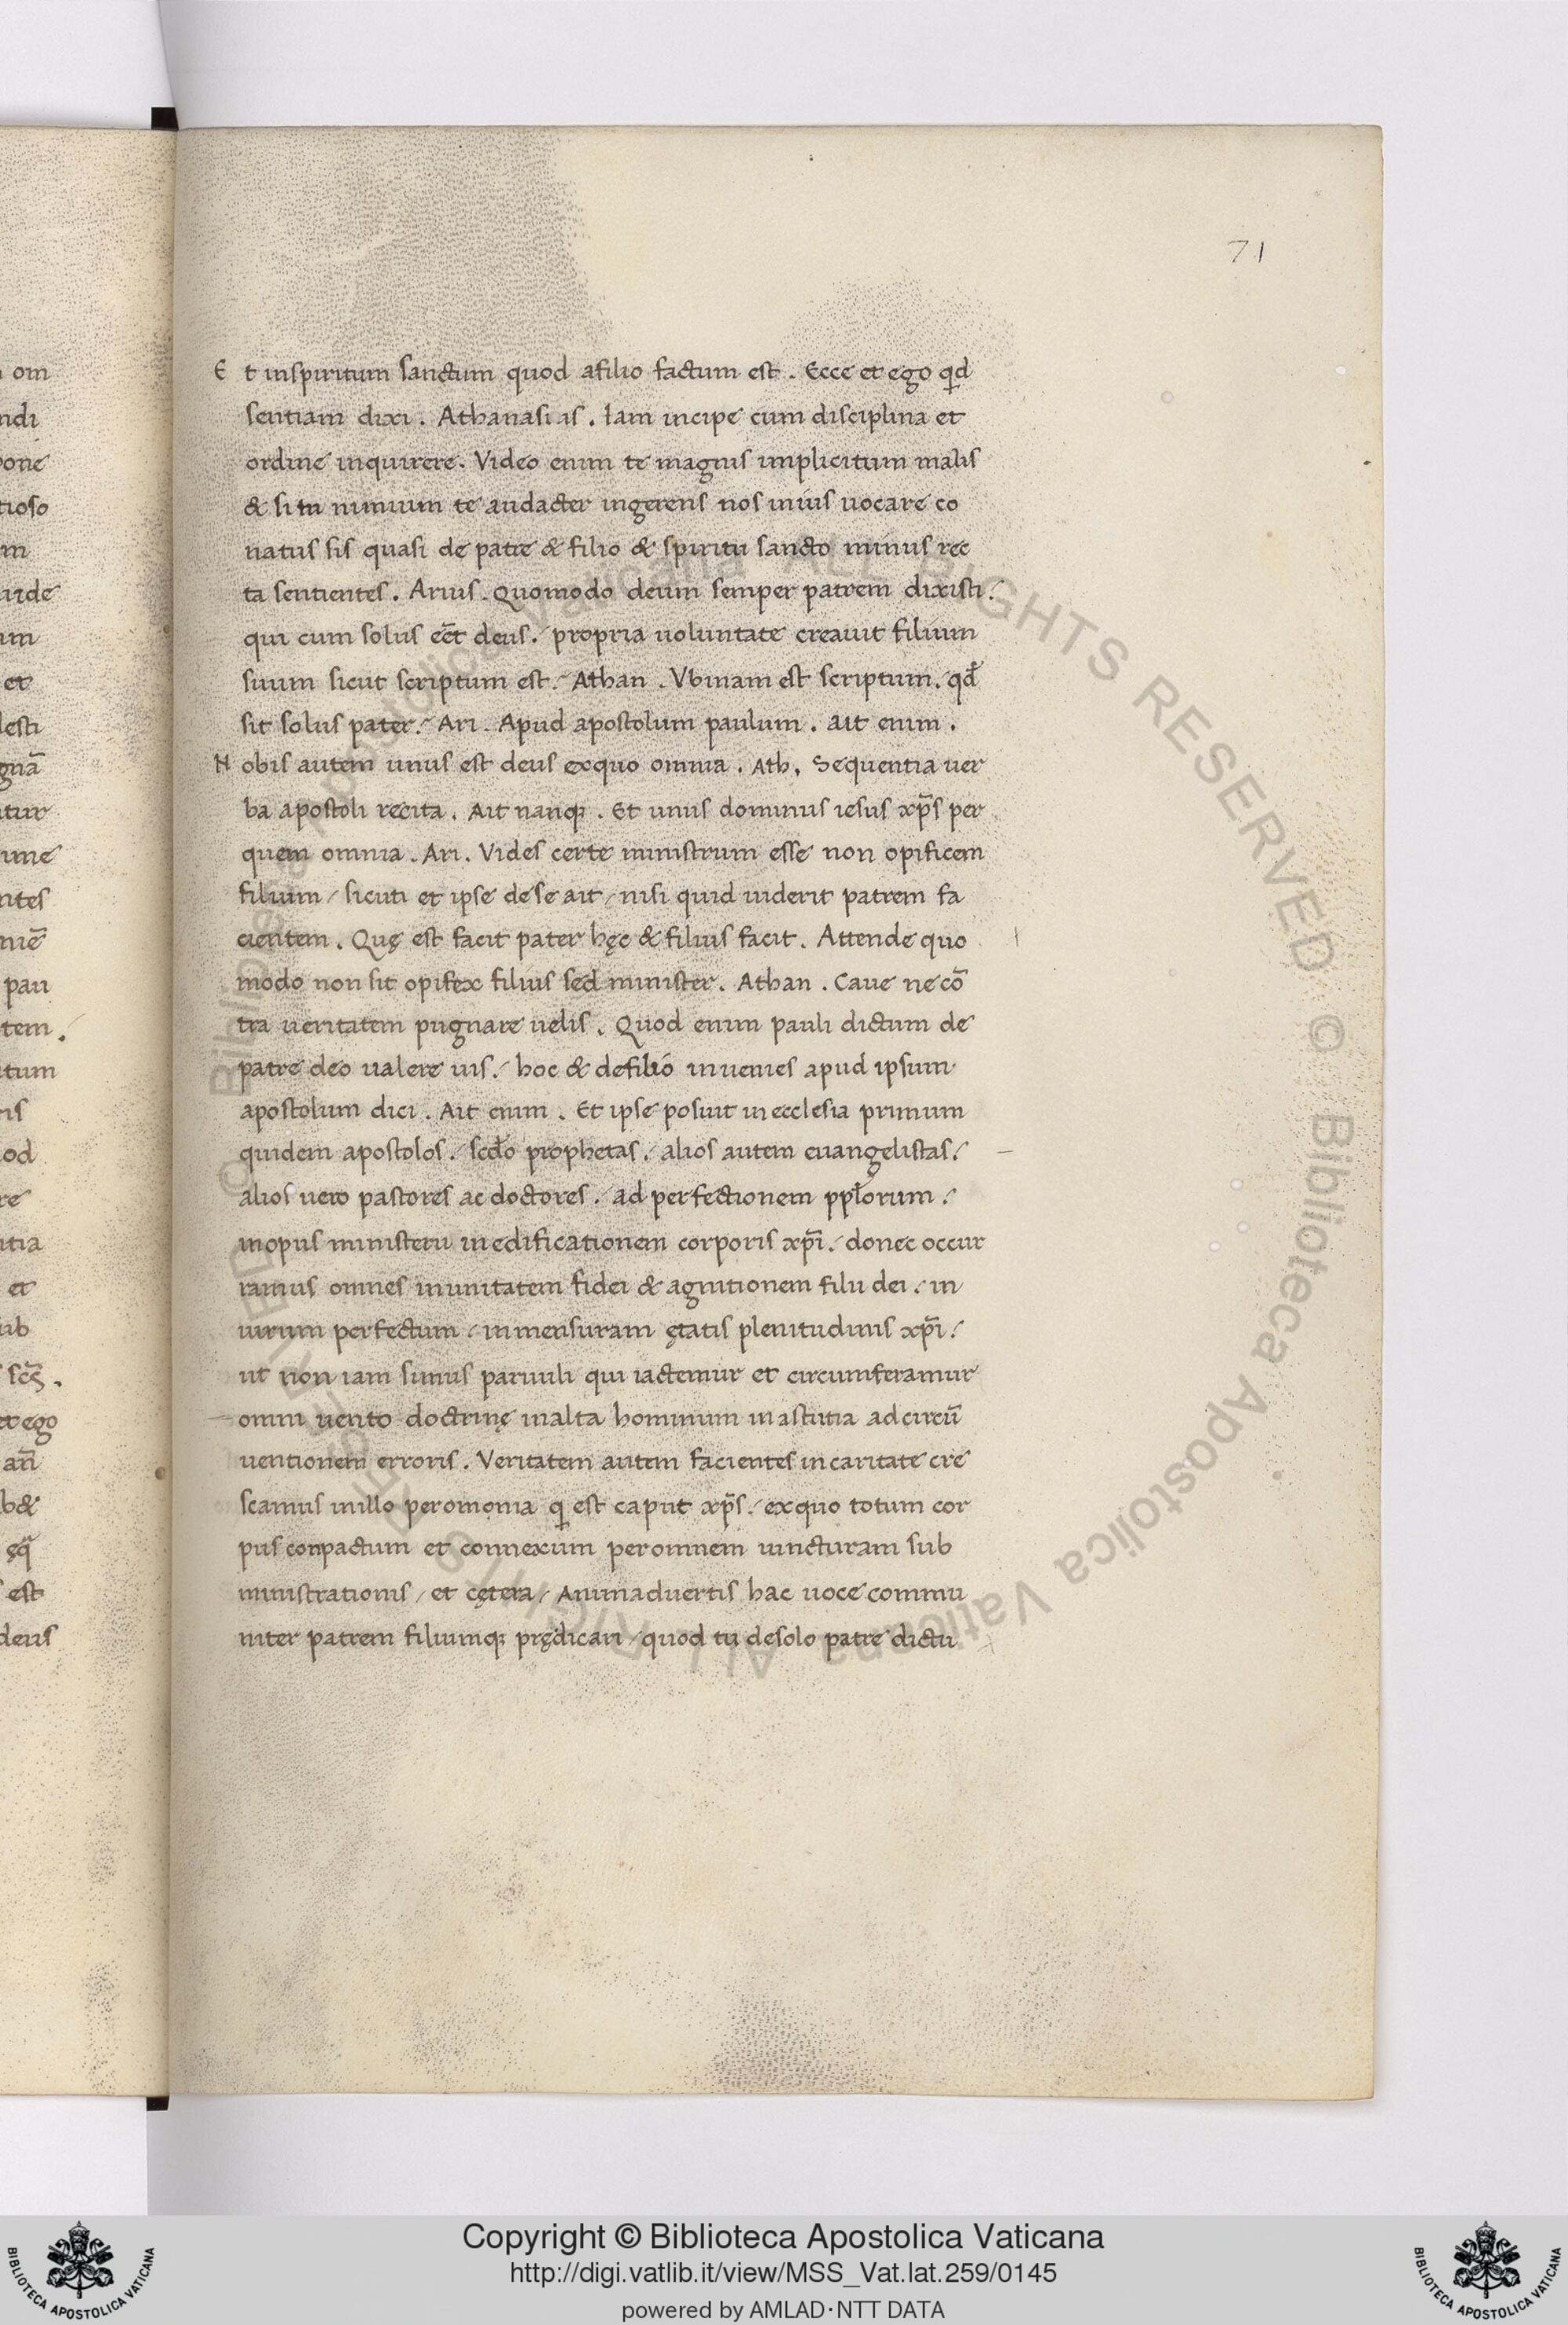 71
Et inspiritum sanctum quod afilio factum est. Ecce et ego qd
sentiam dixi. Athanasius. Iam incipe cum disciplina et
ordine inquirere. Video enim te magnis implicitum malis
& si tu nimium te audacter ingerens nos inius uocare co
natus sis quasi de patre & filio & spiritu sancto minus rec
ta sentientes. Arius. Quomodo deum semper patrem dixisti./
qui cum solus eēt deus./ propria uoluntate creauit filium
suum sicut scriptum est./ Athan. Vbinam est scriptum./ qđ
sit solus pater./ Ari. Apud apostolum paulum. ait enim.
Nobis autem unus est deus exquo omnia. Ath. Sequentia uer
ba apostoli recita. Ait nanq;. Et unus dominus iesus xp̄s per
quem omnia. Ari. Vides certe ministrum esse non opificem
filium / sicuti et ipse de se ait / nisi quid uiderit patrem fa
cientem. Quę est facit pater hęc & filius facit. Attende quo
modo non sit opifex filius sed minister. Athan. Caue ne cō
tra ueritatem pugnare uelis. Quod enim pauli dictum de
patre deo ualere uis./ hoc & defilio inuenies apud ipsum
apostolum dici. Ait enim. Et ipse posuit in ecclesia primum
quidem apostolos./ scđo prophetas./ alios autem euangelistas./
alios uero pastores ac doctores./ ad perfectionem pplorum./
inopus ministerii in edificationem corporis xp̄i./ donec occur
ramus omnes inunitatem fidei & agnitionem filii dei./ in
uirum perfectum / in mensuram ętatis plenitudinis xp̄i./
ut non iam simus paruuli qui iactemur et circumferamur
omni uento doctrinę malta hominum in astutia ad circū
uentionem erroris. Veritatem autem facientes in caritate cre
scamus inillo peromonia q est caput xp̄s./ exquo totum cor
pus conpactum et connexum peromnem iuncturam sub
ministrationis / et cętera / Animaduertis hac uoce commu
niter patrem filiumq; prędicari / quod tu desolo patre dictū
Copyright © Biblioteca Apostolica Vaticana
http://digi.vatlib.it/view/MSS_Vat.lat.259/0145
powered by AMLAD·NTT DATA